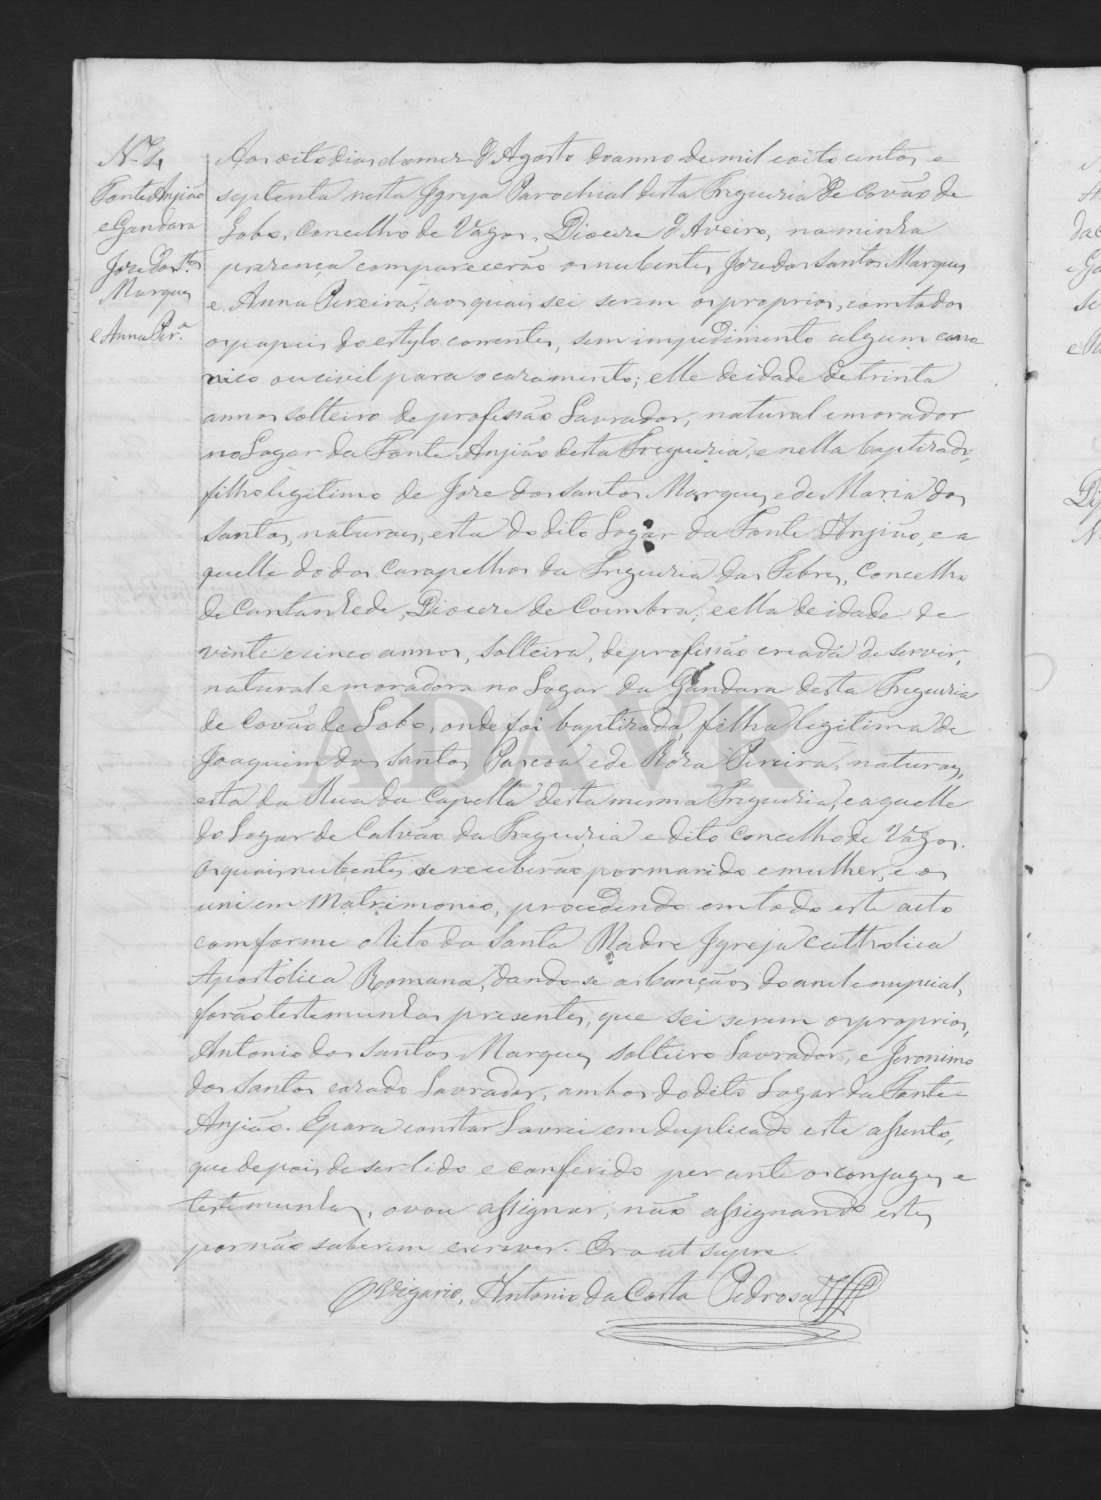 Nº 4
Fonte Anjião
e Gandara
Jose dos Stos
Marques
e Anna Perª
Aos oito dias do mez d'Agosto do anno de mil e oito centos e
septenta nesta Igreja Parochial desta Freguezia de Covão de
Lobo, Concelho de Vagos, Diocese d'Aveiro, na minha
prezença comparecerão os nubentes, Jose dos Santos Marques
e Anna Pereira, aos quais sei serem os proprios, com todos
os papeis do estylo correntes, sem impedimento algum cano
nico ou civil para o cazamento; elle de idade de trinta
annos solteiro de profissão Lavrador, natural e morador
no Lugar da Fonte Anjião desta Freguezia, e nella baptizado,
filho legitimo de Jose dos Santos Marques, e de Maria dos
Santos, naturaes, esta do dito Lugar da Fonte Anjião, e a
quelle do dos Carapelhos da Freguezia das Febres, Concelho
de Cantanhede, Diocese de Coimbra; e ella de idade de
vinte e cinco annos, solteira, de profissão creada de servir,
natural e moradora no Lugar da Gandara desta Freguezia
de Covão de Lobo, onde foi baptizada, filha legitima de
Joaquim dos Santos Pascoa e de Roza Pereira, naturaes,
esta da Rua da Capella desta mesma Freguezia, e aquelle
do Lugar de Calvão da Freguezia e dito Concelho de Vagos.
Os quais nubentes se receberão por marido e mulher, e os
uni em Matrimonio, procedendo em todo este acto
comforme o Rito da Santa Madre Igreja Catholica
Apostolica Romana, dando-se as bençãos do anel e nupcial,
forão testemunhas prezentes, que sei serem os proprios,
Antonio dos Santos Marques, solteiro Lavrador, e Jeronimo
dos Santos cazado Lavrador, ambos do dito Lugar da Fonte
Anjião. E para constar Lavrei em duplicado este assento,
que depois de ser lido e conferido perante os conjuges, e
testemunhas, o vou assignar, não assignando estes,
por não saberem escrever. Era ut supra.
O Vigario, Antonio da Costa Pedrosa
ADAVR